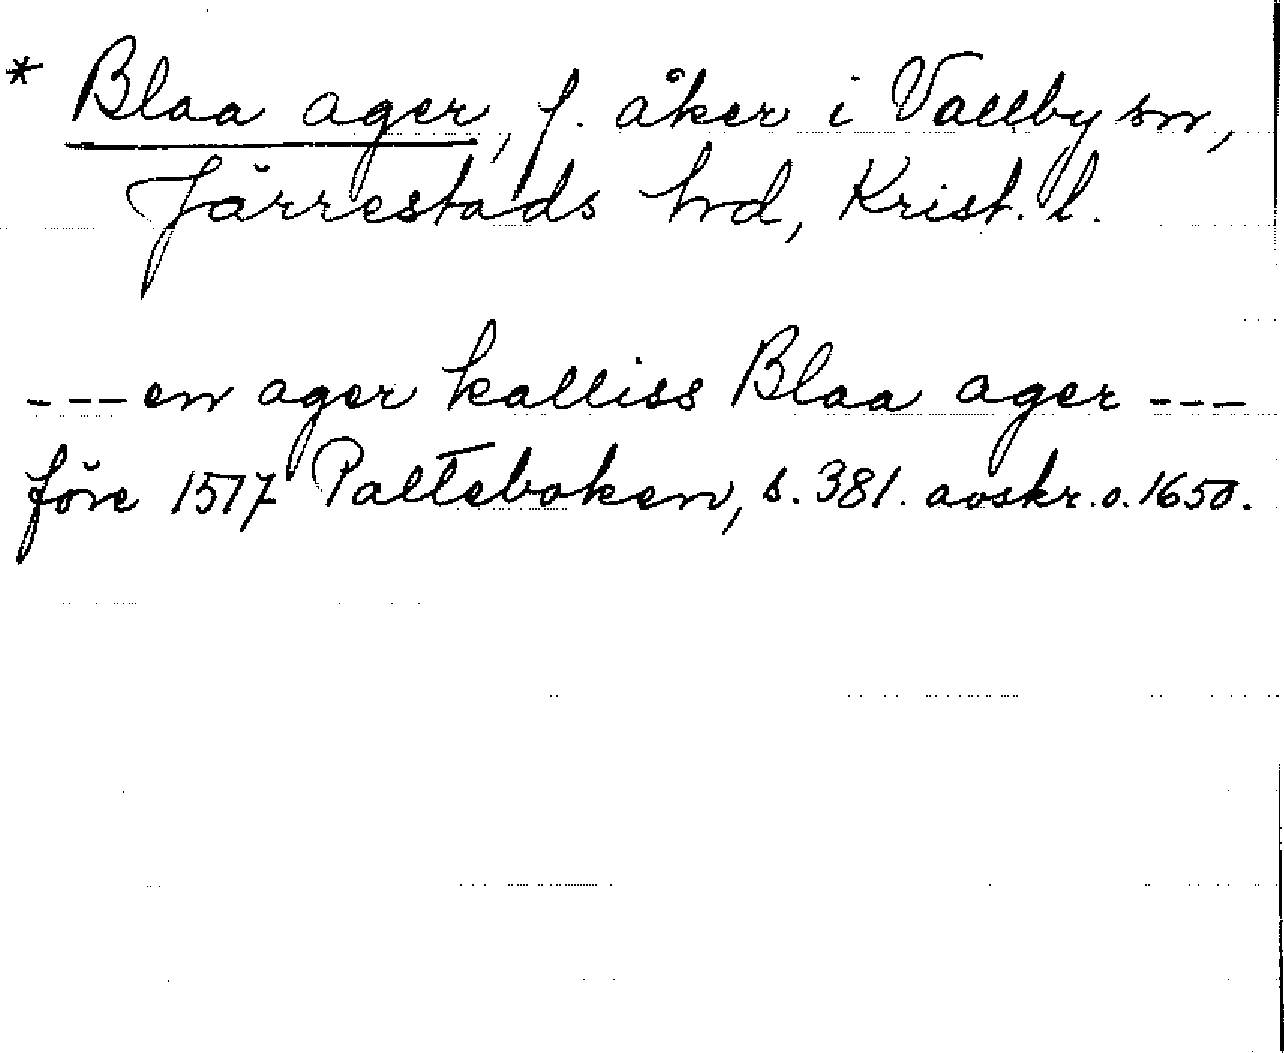 * Blaa ager, f. åker i Vallby sn,
Järrestads hrd, Krist. l.
---en ager kalliss Blaa ager ---
före 1517 Palteboken, s. 381. avskr. o. 1650.